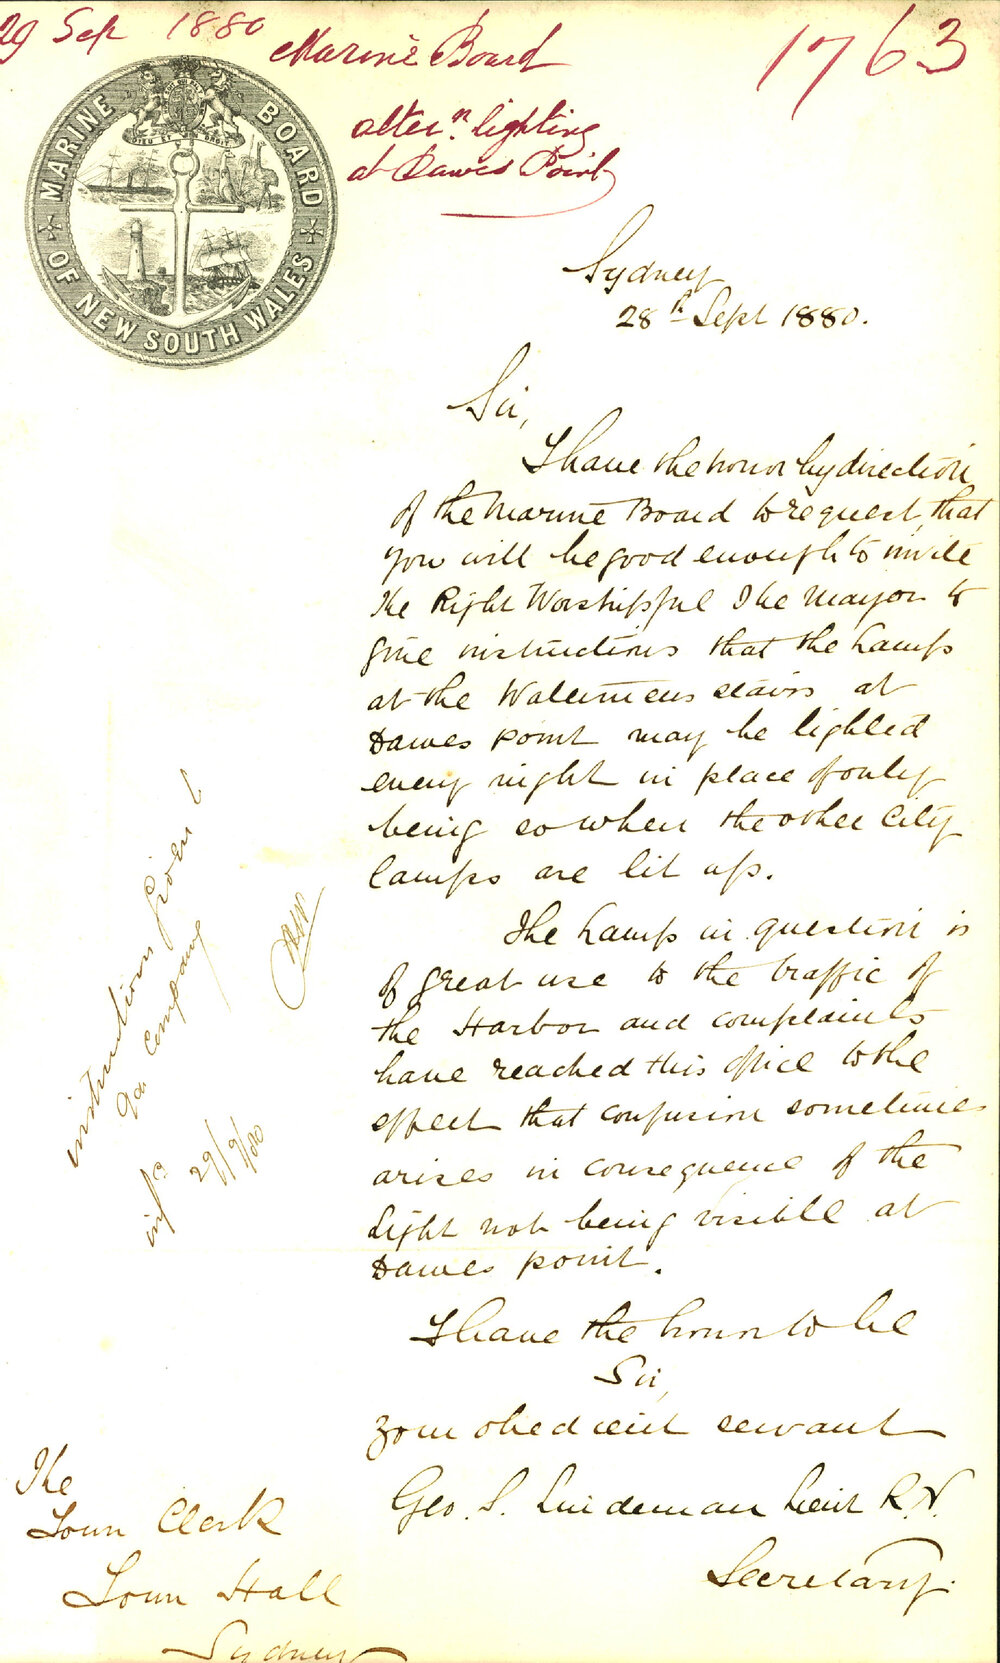 29 Sep 1880
Marine Board
1763
alter.n lighting
at Dawes Point
MARINE BOARD
OF NEW SOUTH WALES
DIEU ET MON DROIT
Sydney
28th Sept 1880.
Sir,
I have the honor by direction
of the Marine Board to request, that
you will be good enough to invite
the Right Worshipful The Mayor to
give instructions that the Lamps
at the Watermens stairs at
Dawes point may be lighted
every night in place of only
being so when the other City
lamps are lit up.
The Lamp in question is
of great use to the traffic of
the Harbor and complaints
have reached this office to the
effect that confusion sometimes
arises in consequence of the
Light not being visible at
Dawes point.
I have the honor to be
Sir,
your obedient servant
Geo. S. Lindeman Lieut R.N.
Secretary.
The
Town Clerk
Town Hall
Sydney
instructions given t
Gas Company
29/9/80